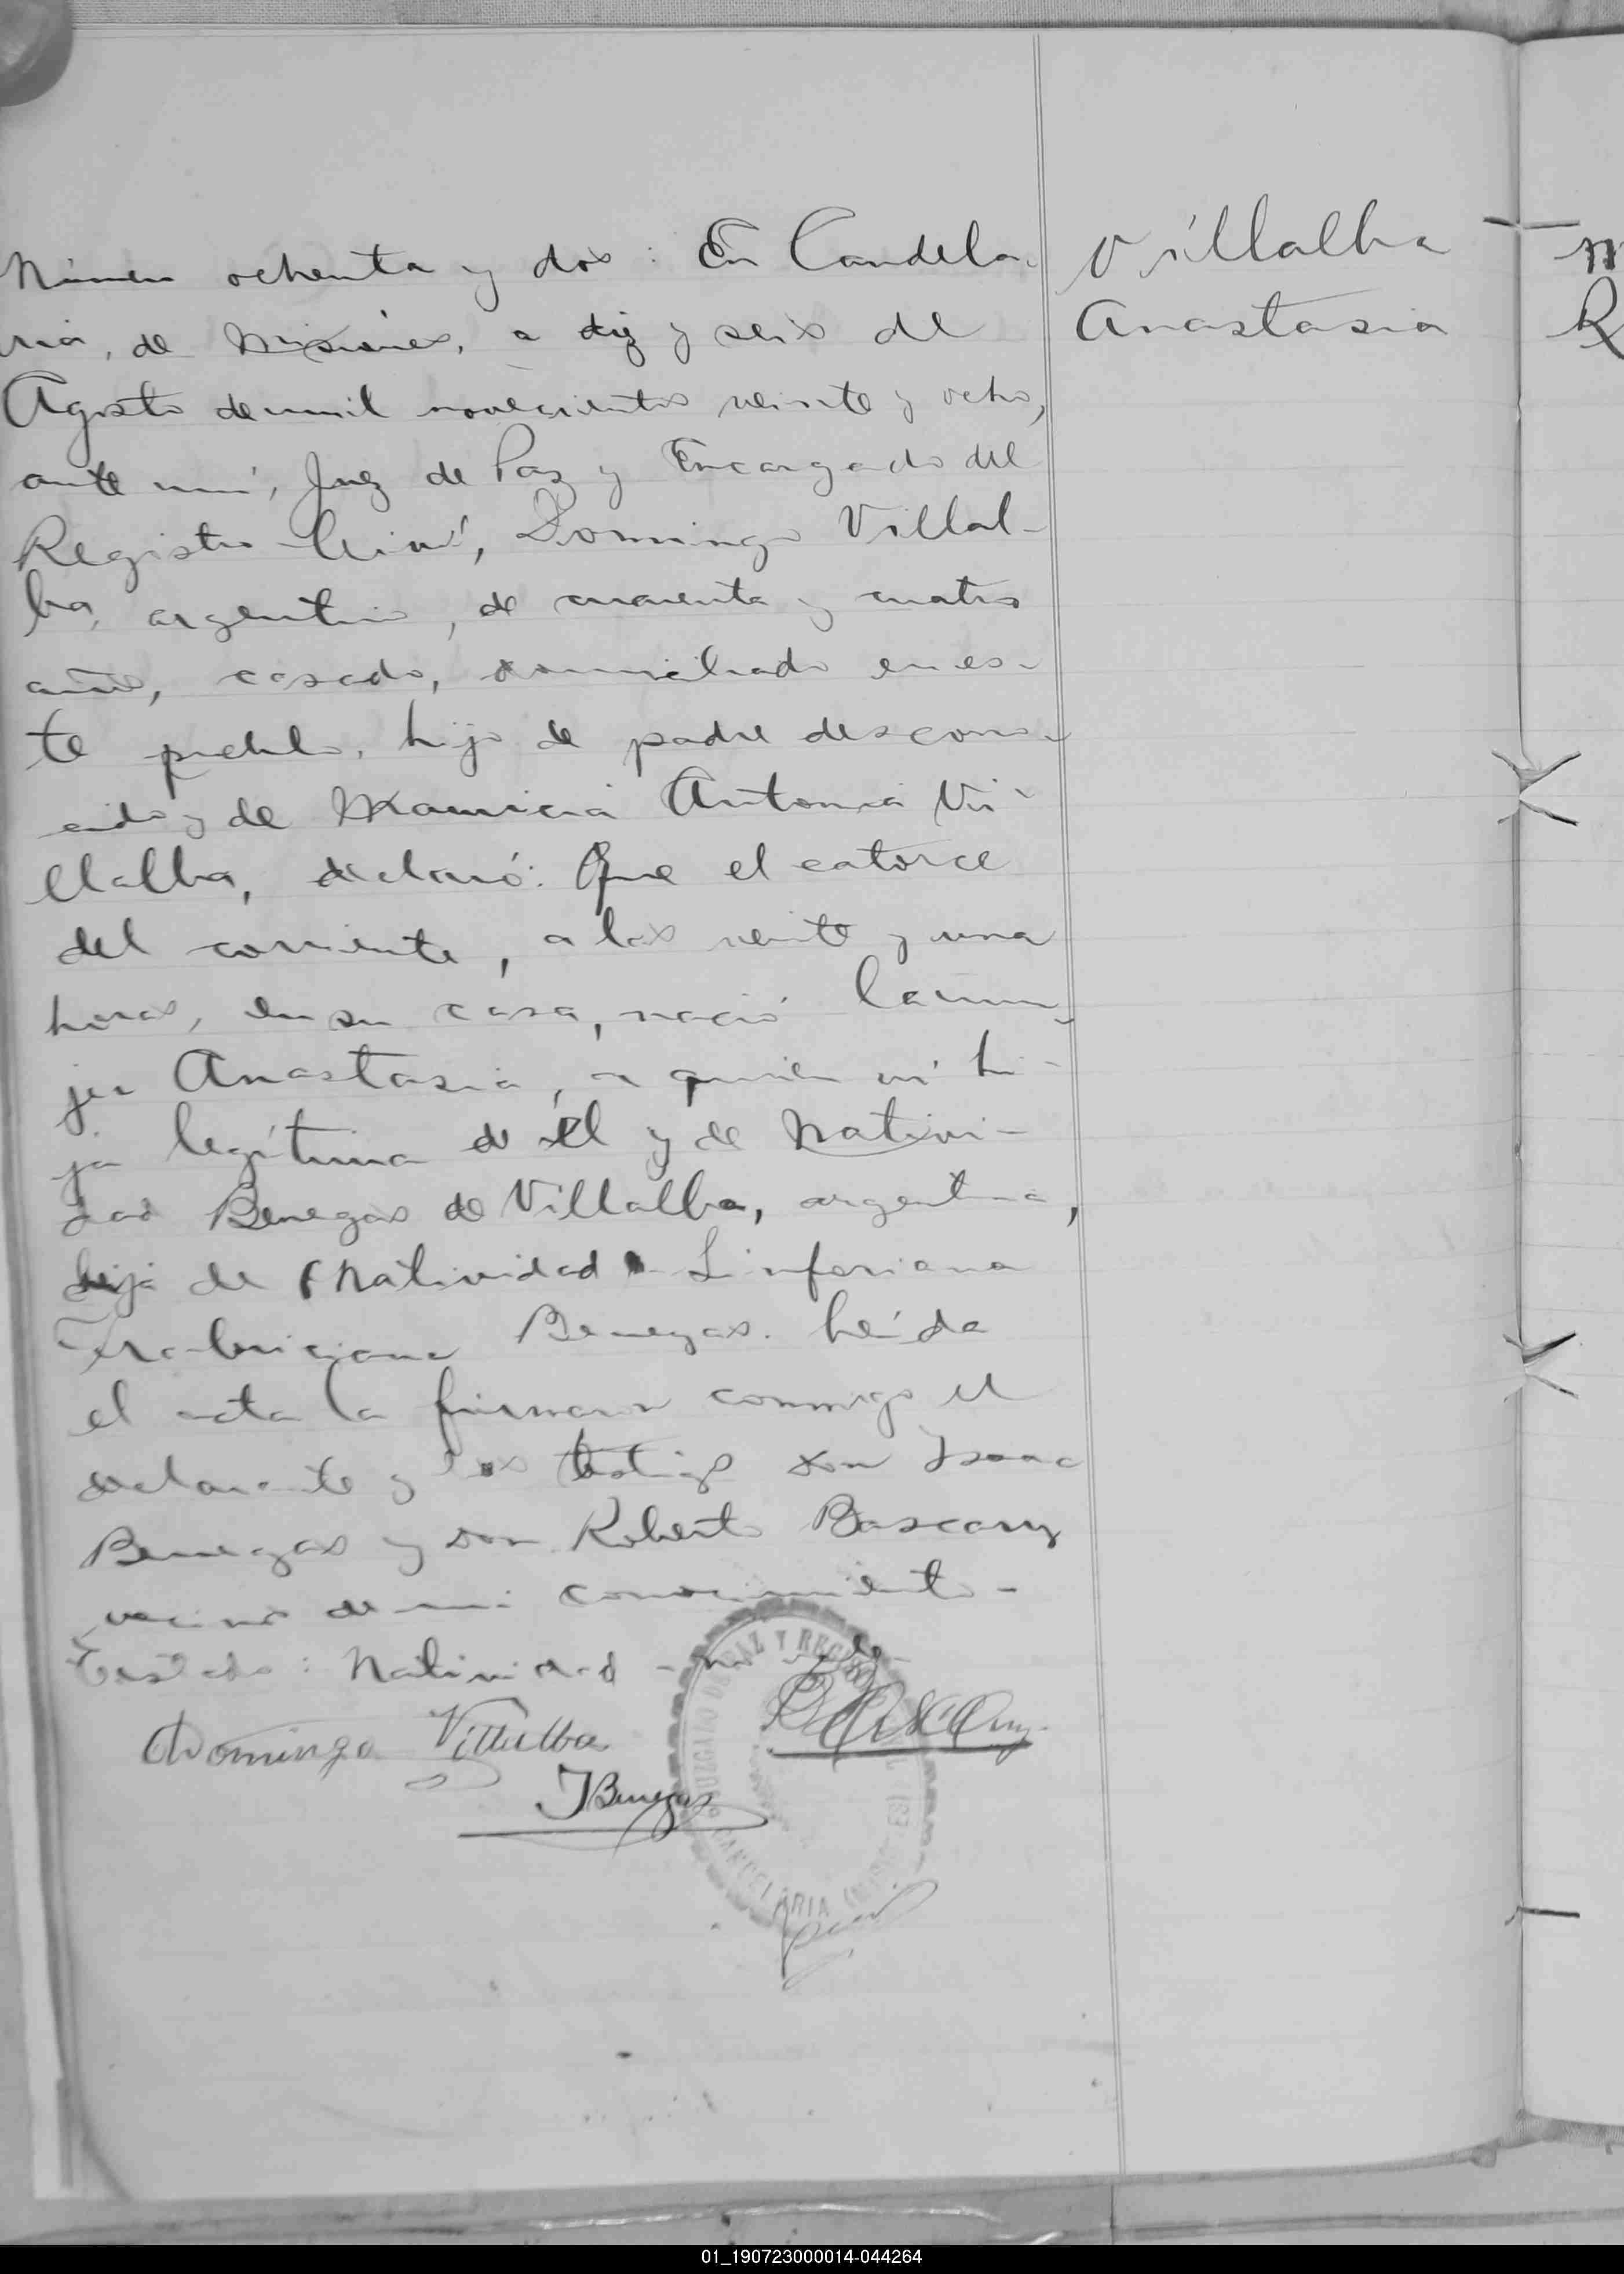 Número ochenta y dos: En Candela-
ria, de Misiones, a diez y seis de
Agosto de mil novecientos veinte y ocho,
ante mí, Juez de Paz y Encargado del
Registro Civil, Domingo Villal-
ba, argentino, de cuarenta y cuatro
años, casado, domiciliado en es-
te pueblo, hijo de padre descono-
cido y de Mauricia Antonia Vi-
llalba, declaró: Que el catorce
del corriente, a las veinte y una
horas, en su casa, nació la mu-
jer Anastasia, a quien vi hi-
ja legítima de él y de Nativi-
dad Benegas de Villalba, argentina,
hija de (Natividad
Benegas. Leída
el acta la firmaron conmigo el
declarante y los testigos don Isaac
Benegas y don Roberto Bascary
vecinos de mi conocimiento -
Testado: Natividad - no vale -
Domingo Villalba
RBascary
JBenegas
JUZGADO DE PAZ Y REGISTRO
CANDELARIA (MISIONES)
Villalba
Anastasia
01_190723000014-044264